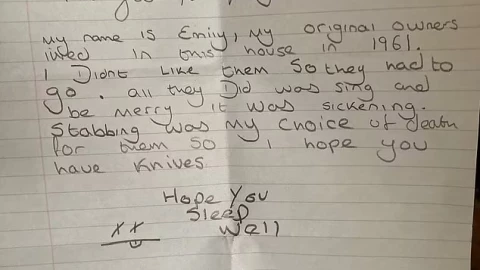 my name is Emily, my original owners
lived in this house in 1961.
I Didnt Like them So they had to
go. all they Did was sing and
be merry it was sickening.
Stabbing was my choice of death
for them so I hope you
have knives
Hope You
Sleep
Well
xx